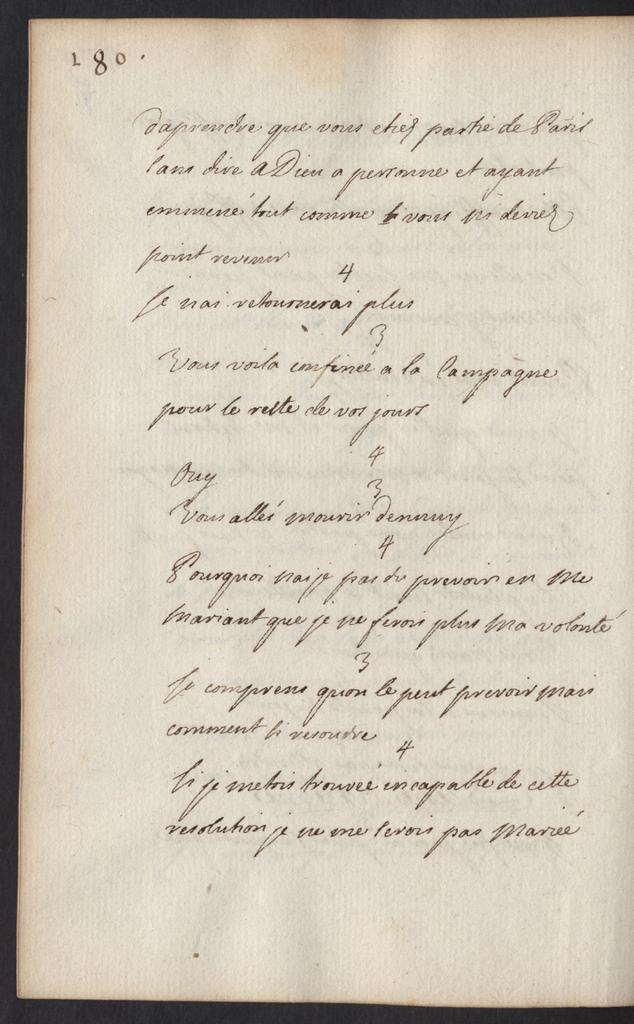 180.
daprendre que vous etiez partie de Paris
sans dire aDieu a personne et ayant
emmené tout comme si vous ni deviez
point revenir
4
Je nai retournerai plus
3
Vous voila confinée a la Campagne
pour le reste de vos jours
4
Ouy
3
Vous allés mourir denuuy
4
Pourquoi naije pas du prevoir en me
mariant que je ne ferois plus ma volonté
3
Je comprens quon le peut prevoir mais
comment si resoudre
4
Si je metois trouvée incapable de cette
resolution je ne me serois pas Mariée